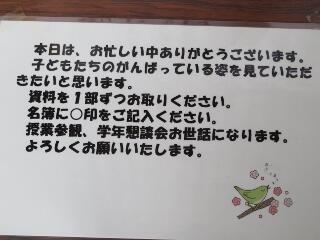 本日は、お忙しい中ありがとうございます。
子どもたちのがんばっている姿を見ていただ
きたいと思います。
資料を１部ずつお取りください。
名簿に○印をご記入ください。
授業参観、学年懇談会お世話になります。
よろしくお願いいたします。